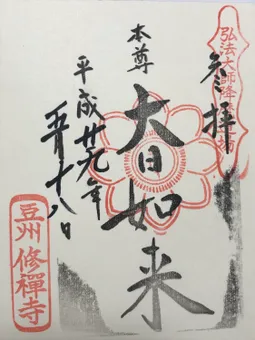 参拝
本尊
大日如来
平成廿九年
五月十八日
豆州 修禅寺
弘法大師降